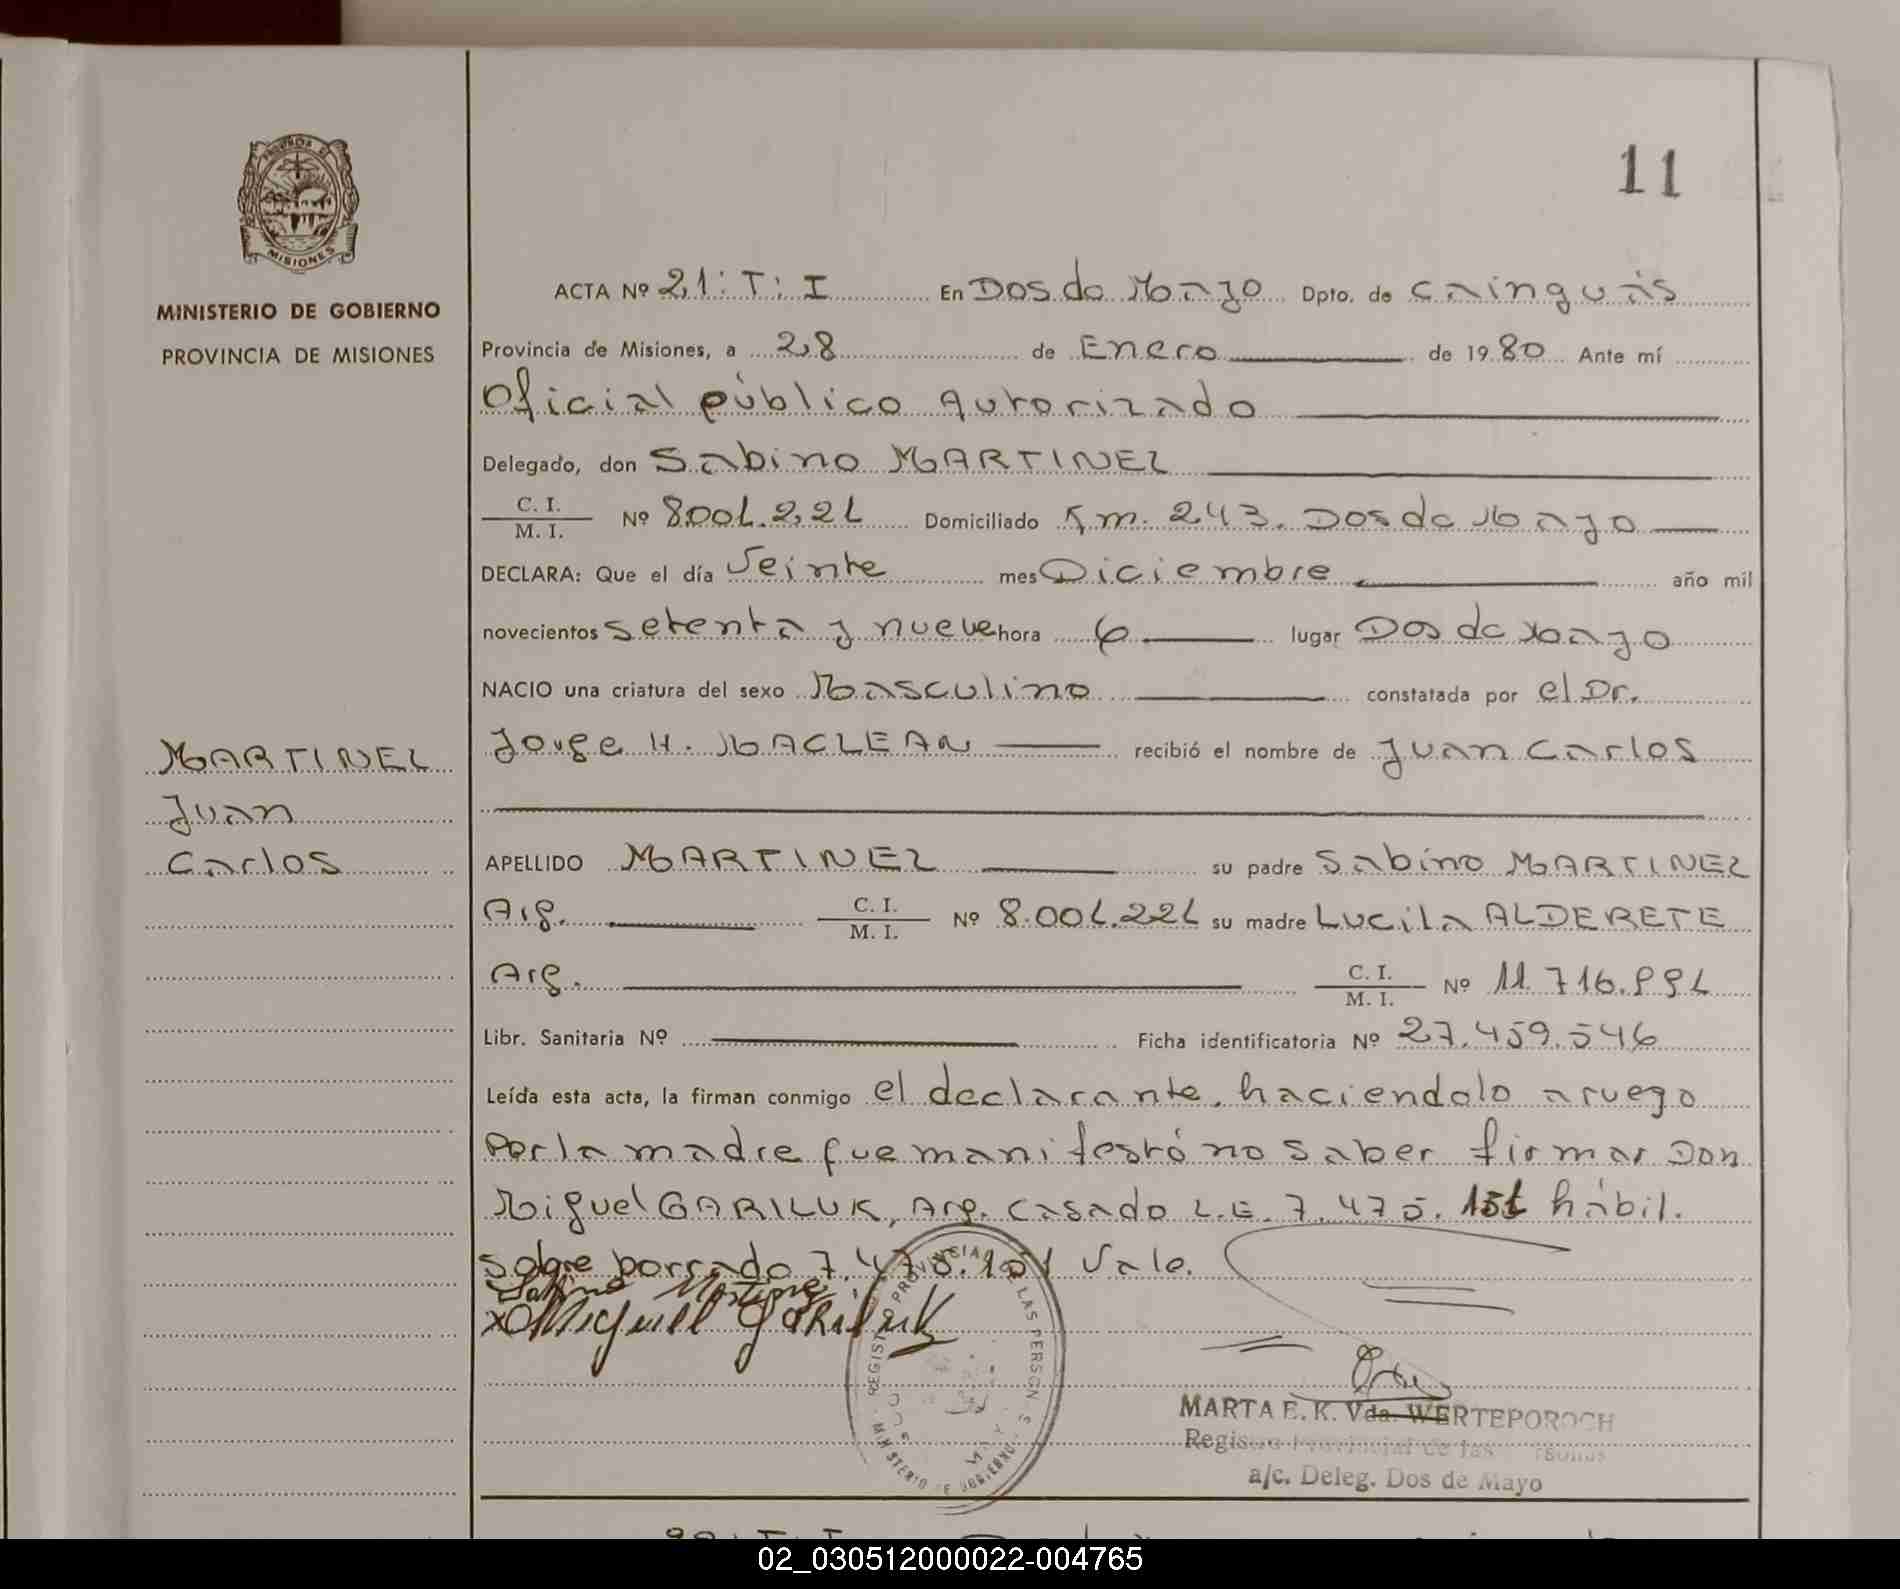 11
ACTA Nº 21: T: I En Dos de Mayo Dpto. de Cainguás
MINISTERIO DE GOBIERNO
PROVINCIA DE MISIONES
Provincia de Misiones, a 28 de Enero de 1980 Ante mí
Oficial público autorizado
Delegado, don Sabino MARTINEZ
C. I.
M. I. Nº Domiciliado Km. 243. Dos de Mayo
DECLARA: Que el día Veinte mes Diciembre año mil
novecientos setenta y nueve hora 6 lugar Dos de Mayo
NACIO una criatura del sexo Masculino constatada por el Dr.
Jorge H. MACLEAN recibió el nombre de Juan Carlos
MARTINEZ
Juan
Carlos
APELLIDO MARTINEZ su padre Sabino MARTINEZ
Arg. C. I.
M. I. Nº su madre Lucila ALDERETE
Arg. C. I.
M. I. Nº
Libr. Sanitaria Nº Ficha identificatoria Nº 27.459.546
Leída esta acta, la firman conmigo el declarante, haciendolo a ruego
Por la madre que manifestó no saber firmar Don
Miguel GARILUK, Arg. casado L.E. 7.475.151 hábil.
Sobre borrado 7.475.151 Vale.
Sabino Martinez
REGISTRO PROVINCIAL DE LAS PERSONAS
MINISTERIO DE GOBIERNO
MARTA E. K. Vda. WERTEPOROCH
Registro Provincial de las Personas
a/c. Deleg. Dos de Mayo
02_030512000022-004765